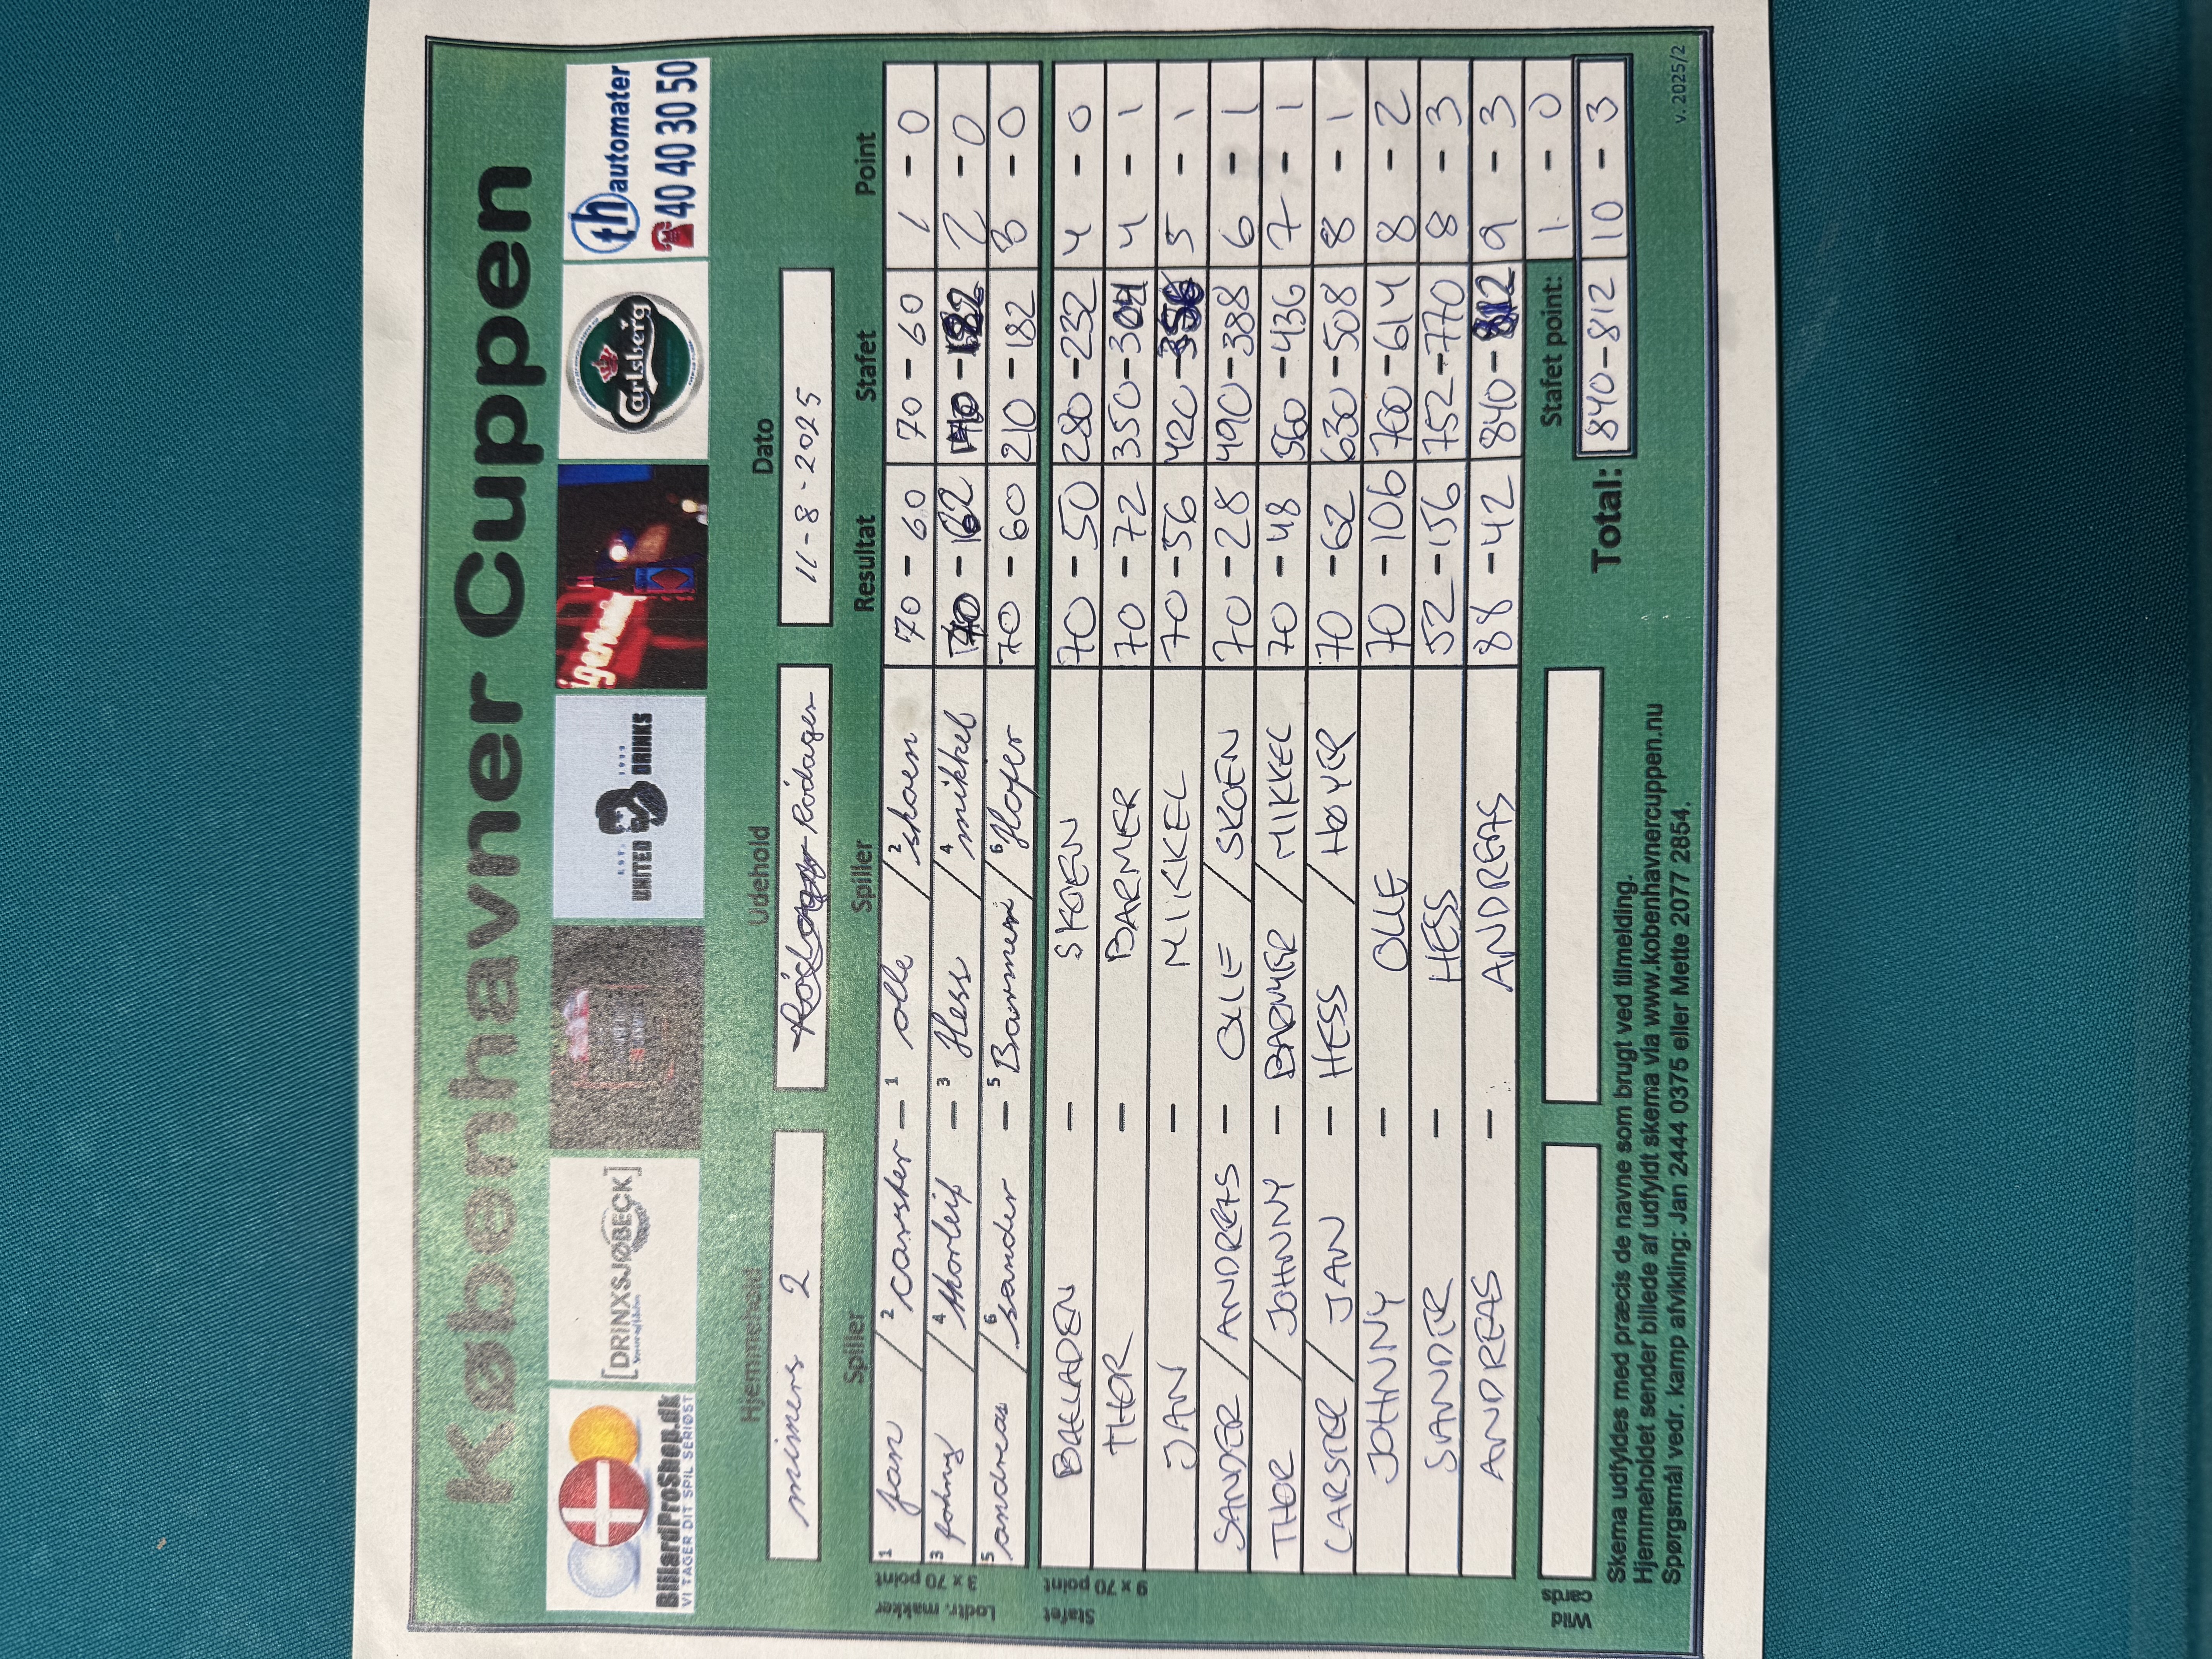 Københavner Cuppen
BilliardProShop.dk
VI TAGER DIT SPIL SERIØST
[DRINXSJØBECK]
EST. 1999
UNITED DRINKS
Carlsberg
th automater
40 40 30 50
Hjemmehold Udehold Dato
mimers 2 Rödager 11-8-2025
Spiller Spiller Resultat Stafet Point
1 Jan / 2 carster - 1 olle / 2 skoen 70 - 60 70 - 60 1 - 0
3 Johnny / 4 thorleif - 3 Hess / 4 mikkel 70 - 62 140 - 182 2 - 0
5 andreas / 6 sander - 5 Barmer / 6 70 - 60 210 - 182 3 - 0
Lodtr. makker 3 x 70 point
BAGLADEN - SKOEN 70 - 50 280 - 232 4 - 0
THOR - BARMER 70 - 72 350 - 304 4 - 1
JAN - MIKKEL 70 - 56 420 - 356 5 - 1
SANDER / ANDREAS - OLLE / SKOEN 70 - 28 490 - 388 6 - 1
THOR / JOHNNY - BARMER / MIKKEL 70 - 48 560 - 436 7 - 1
CARSTEN / JAN - HESS / HØYER 70 - 62 630 - 508 8 - 1
JOHNNY - OLLE 70 - 106 700 - 614 8 - 2
SANDER - HESS 52 - 156 752 - 770 8 - 3
ANDREAS - ANDREAS 88 - 42 840 - 812 9 - 3
Stafet 9 x 70 point
Wild cards
Stafet point: 1 - 0
Total: 840 - 812 10 - 3
Skema udfyldes med præcis de navne som brugt ved tilmelding.
Hjemmeholdet sender billede af udfyldt skema via www.kobenhavnercuppen.nu
Spørgsmål vedr. kamp afvikling: Jan 2444 0375 eller Mette 2077 2854.
v. 2025/2